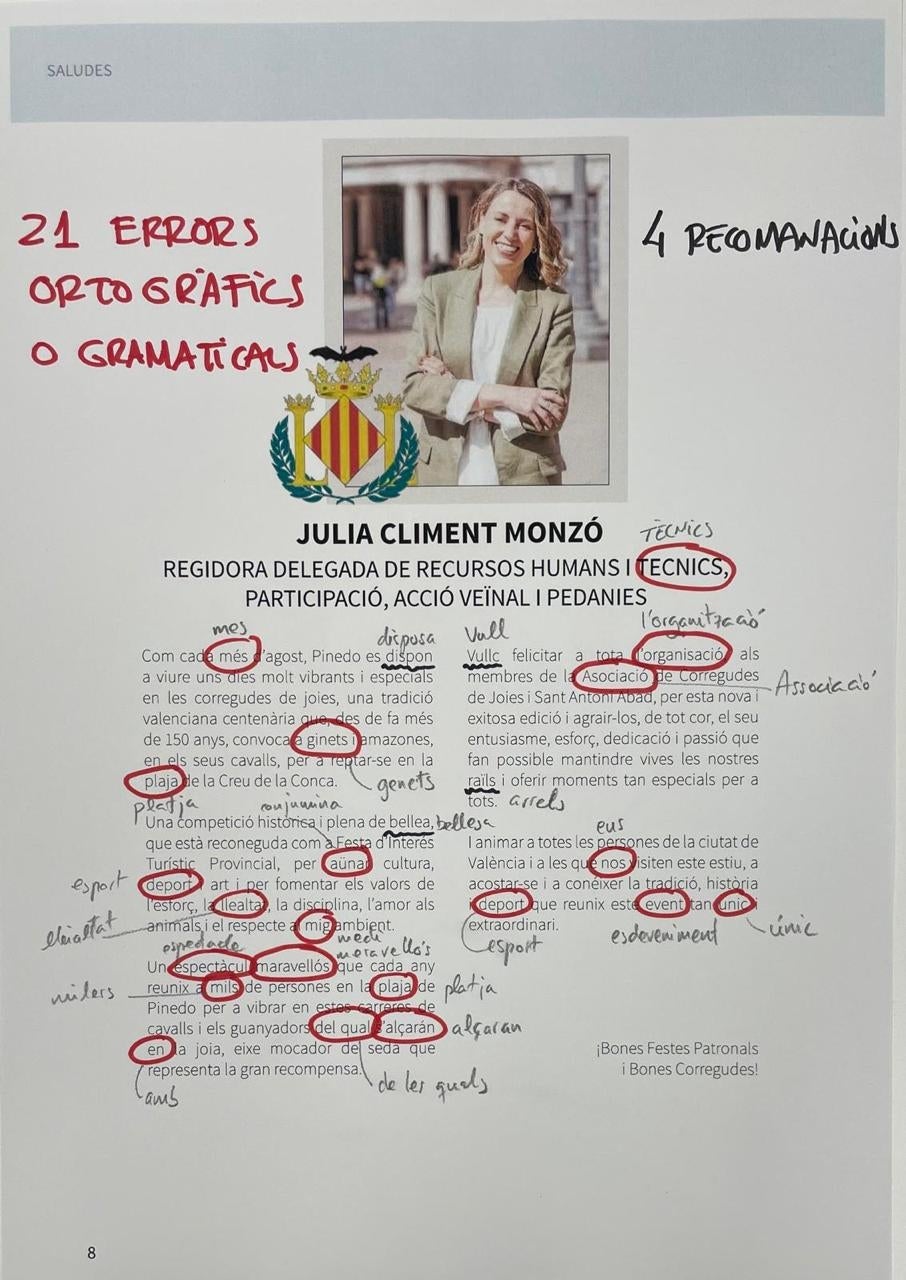 SALUDES
21 ERRORS
ORTOGRÀFICS
O GRAMATICALS
4 RECOMANACIONS
JULIA CLIMENT MONZÓ
TÈCNICS
REGIDORA DELEGADA DE RECURSOS HUMANS I TECNICS,
PARTICIPACIÓ, ACCIÓ VEÏNAL I PEDANIES
mes
disposa
Com cada més d'agost, Pinedo es dispon
a viure uns dies molt vibrants i especials
en les corregudes de joies, una tradició
valenciana centenària que, des de fa més
de 150 anys, convoca a ginets i amazones,
en els seus cavalls, per a reptar-se en la
plaja de la Creu de la Conca.
genets
platja
conjumina
Una competició històrica i plena de bellea,
bellesa
que està reconeguda com a Festa d'Interés
Turístic Provincial, per aünar cultura,
esport
deport i art i per fomentar els valors de
l'esforç, la llealtat, la disciplina, l'amor als
lleialtat
animals i el respecte al mig ambient.
espectacle
medi
meravellós
Un espectàcul maravellós que cada any
milers
reunix a mils de persones en la plaja de
platja
Pinedo per a vibrar en estes carreres de
cavalls i els guanyadors del qual s'alçarán
alçaran
en la joia, eixe mocador de seda que
representa la gran recompensa.
amb
de les quals
Vull
l'organització
Vullc felicitar a tota l'organisació als
membres de la Asociació de Corregudes
Associació
de Joies i Sant Antoni Abad, per esta nova i
exitosa edició i agrair-los, de tot cor, el seu
entusiasme, esforç, dedicació i passió que
fan possible mantindre vives les nostres
raïls i oferir moments tan especials per a
tots.
arrels
eus
I animar a totes les persones de la ciutat de
València i a les que nos visiten este estiu, a
acostar-se i a conéixer la tradició, història
i deport que reunix este event tan unic i
extraordinari.
esport
esdeveniment
únic
¡Bones Festes Patronals
i Bones Corregudes!
8